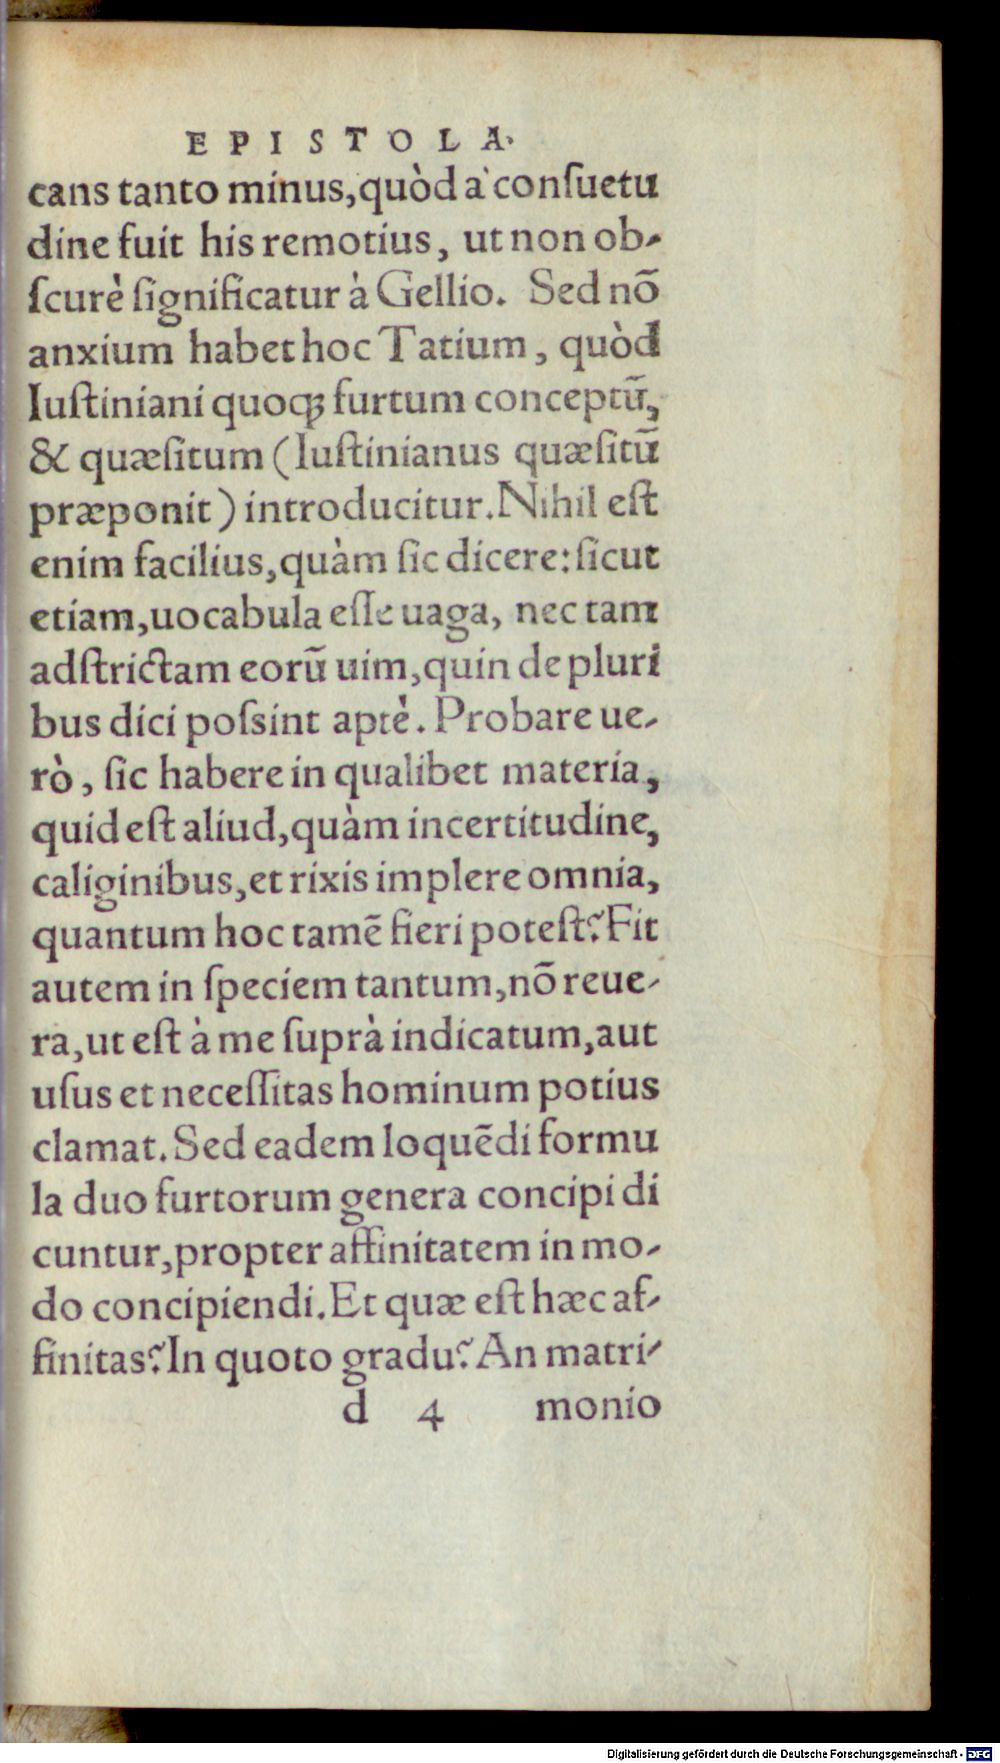 EPISTOLA.
cans tanto minus, quòd à conſuetu
dine fuit his remotius, ut non ob-
ſcurè ſignificatur à Gellio. Sed nõ
anxium habet hoc Tatium, quòd
Iuſtiniani quoqꝫ furtum conceptũ,
& quæſitum (Iuſtinianus quæſitũ
præponit) introducitur. Nihil eſt
enim facilius, quàm ſic dicere: ſicut
etiam, uocabula eſſe uaga, nec tam
adſtrictam eorũ uim, quin de pluri
bus dici poſsint aptè. Probare ue-
rò, ſic habere in qualibet materia,
quid eſt aliud, quàm incertitudine,
caliginibus, et rixis implere omnia,
quantum hoc tamẽ fieri poteſt? Fit
autem in ſpeciem tantum, nõ reue-
ra, ut eſt à me ſuprà indicatum, aut
uſus et neceſſitas hominum potius
clamat. Sed eadem loquẽdi formu
la duo furtorum genera concipi di
cuntur, propter affinitatem in mo-
do concipiendi. Et quæ eſt hæc af-
finitas? In quoto gradu? An matri-
d 4 monio
Digitalisierung gefördert durch die Deutsche Forschungsgemeinschaft - DFG